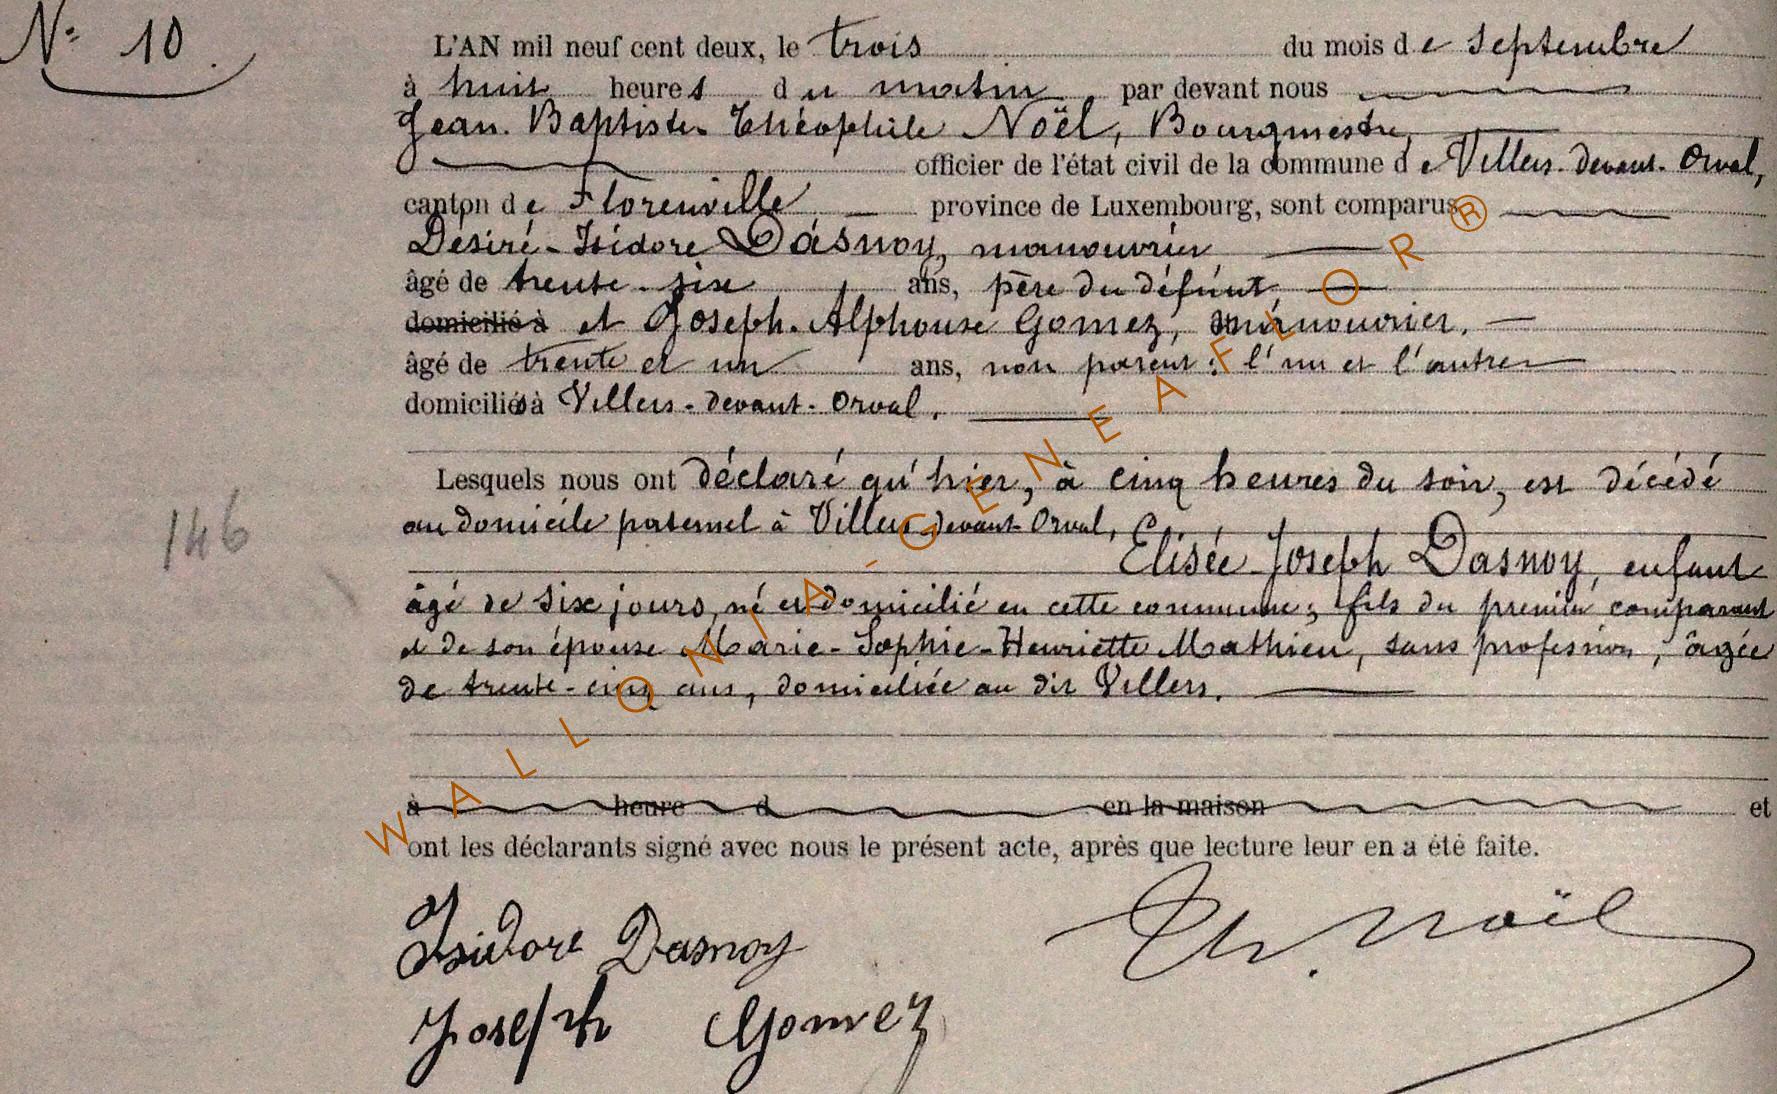 N° 10.
L'AN mil neuf cent deux, le trois du mois de septembre
à huit heures du matin, par devant nous
Jean-Baptiste Théophile Noël, Bourgmestre,
officier de l'état civil de la commune de Villers-devant-Orval,
canton de Florenville, province de Luxembourg, sont comparus
Désiré-Isidore Dasnoy, manouvrier
âgé de trente-six ans, père du défunt,
domicilié à et Joseph-Alphonse Gomez, manouvrier,
âgé de trente et un ans, non parent; l'un et l'autre
domiciliés à Villers-devant-Orval.
Lesquels nous ont déclaré qu'hier, à cinq heures du soir, est décédé
au domicile paternel à Villers-devant-Orval,
Elisée Joseph Dasnoy, enfant
146
âgé de six jours, né et domicilié en cette commune; fils du premier comparant
et de son épouse Marie-Sophie-Henriette Mathieu, sans profession, âgée
de trente-cinq ans, domiciliée au dit Villers.
à heure d en la maison et
ont les déclarants signé avec nous le présent acte, après que lecture leur en a été faite.
Isidore Dasnoy
Th. Noël
Joseph Gomez
WALLONIA-GENEAFLOR®